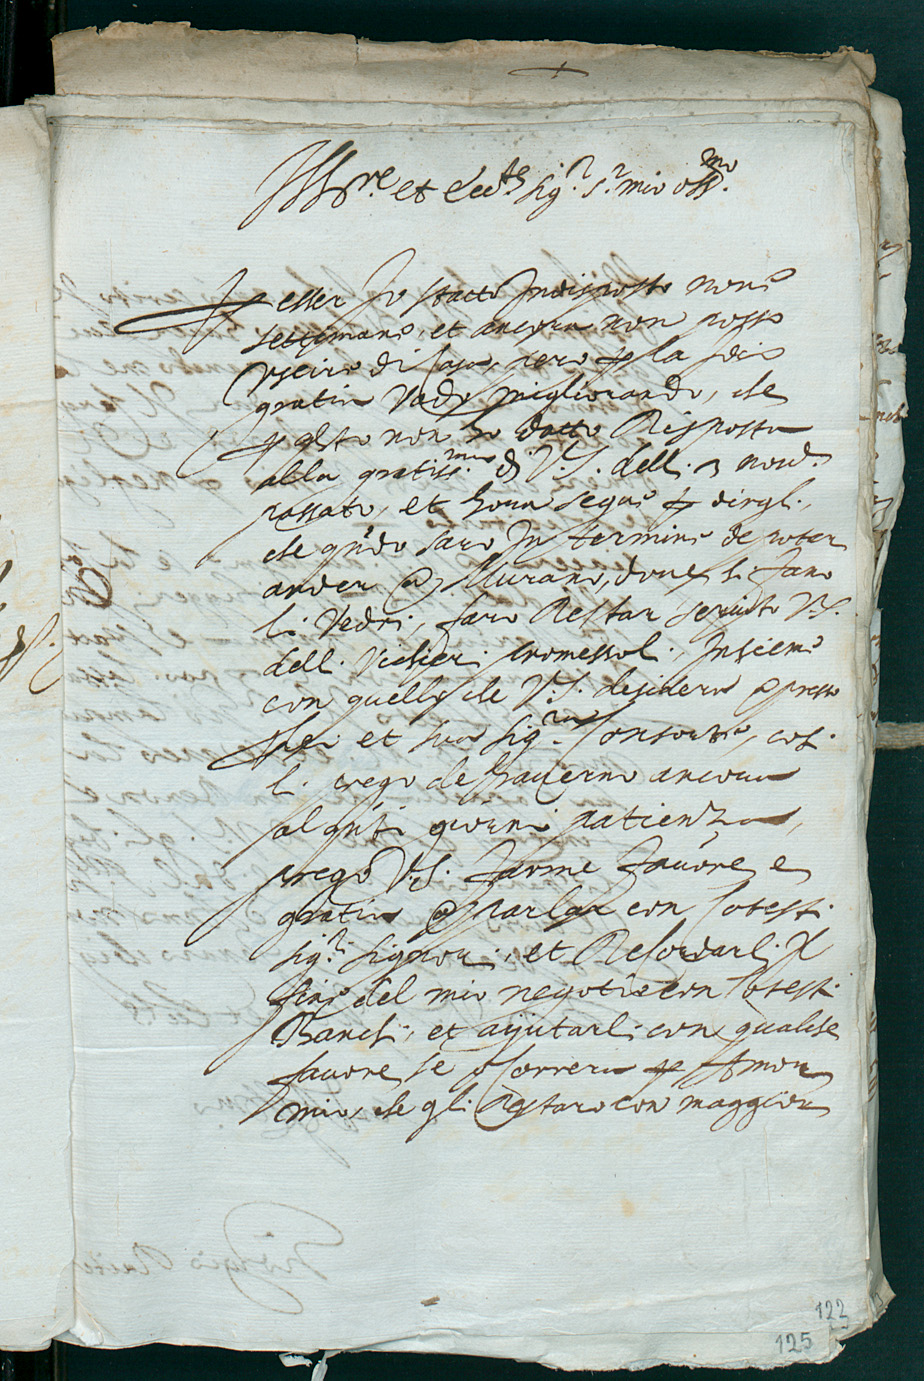 Ill.re et Ecc.te Sig.r S.r mio oss.mo
Per esser Io statto Indisposto nove
settimane, et ancora non posso
Uscire di Casa, pero p la Idio
gratia Vado migliorando, che
p q.sto non ho datto Risposta
alla gratiss.ma di V.S. delli 3 nov.
passato, et hora segue p dirgli,
che q.ndo saro In termine de poter
andar a Murano, dove si fano
li Vedri, faro Restar servito V.S.
delli Vichieri promessoli, Insieme
con quello che V.S. desidera apresso
Per et sua Sig.ra Consorte, cosi
li prego de haverno ancora
alq.nti giorni patienza,
prego V.S. farme favore e
gratia a parlar con Cotesti
Sig.ri Signori, et Ricordarli Il
fine del mio negotio con Cotesti
Banchi, et ajutarli con qualche
favore se ocorrera p Amor
mio, che gli Restaro con maggior
122
125